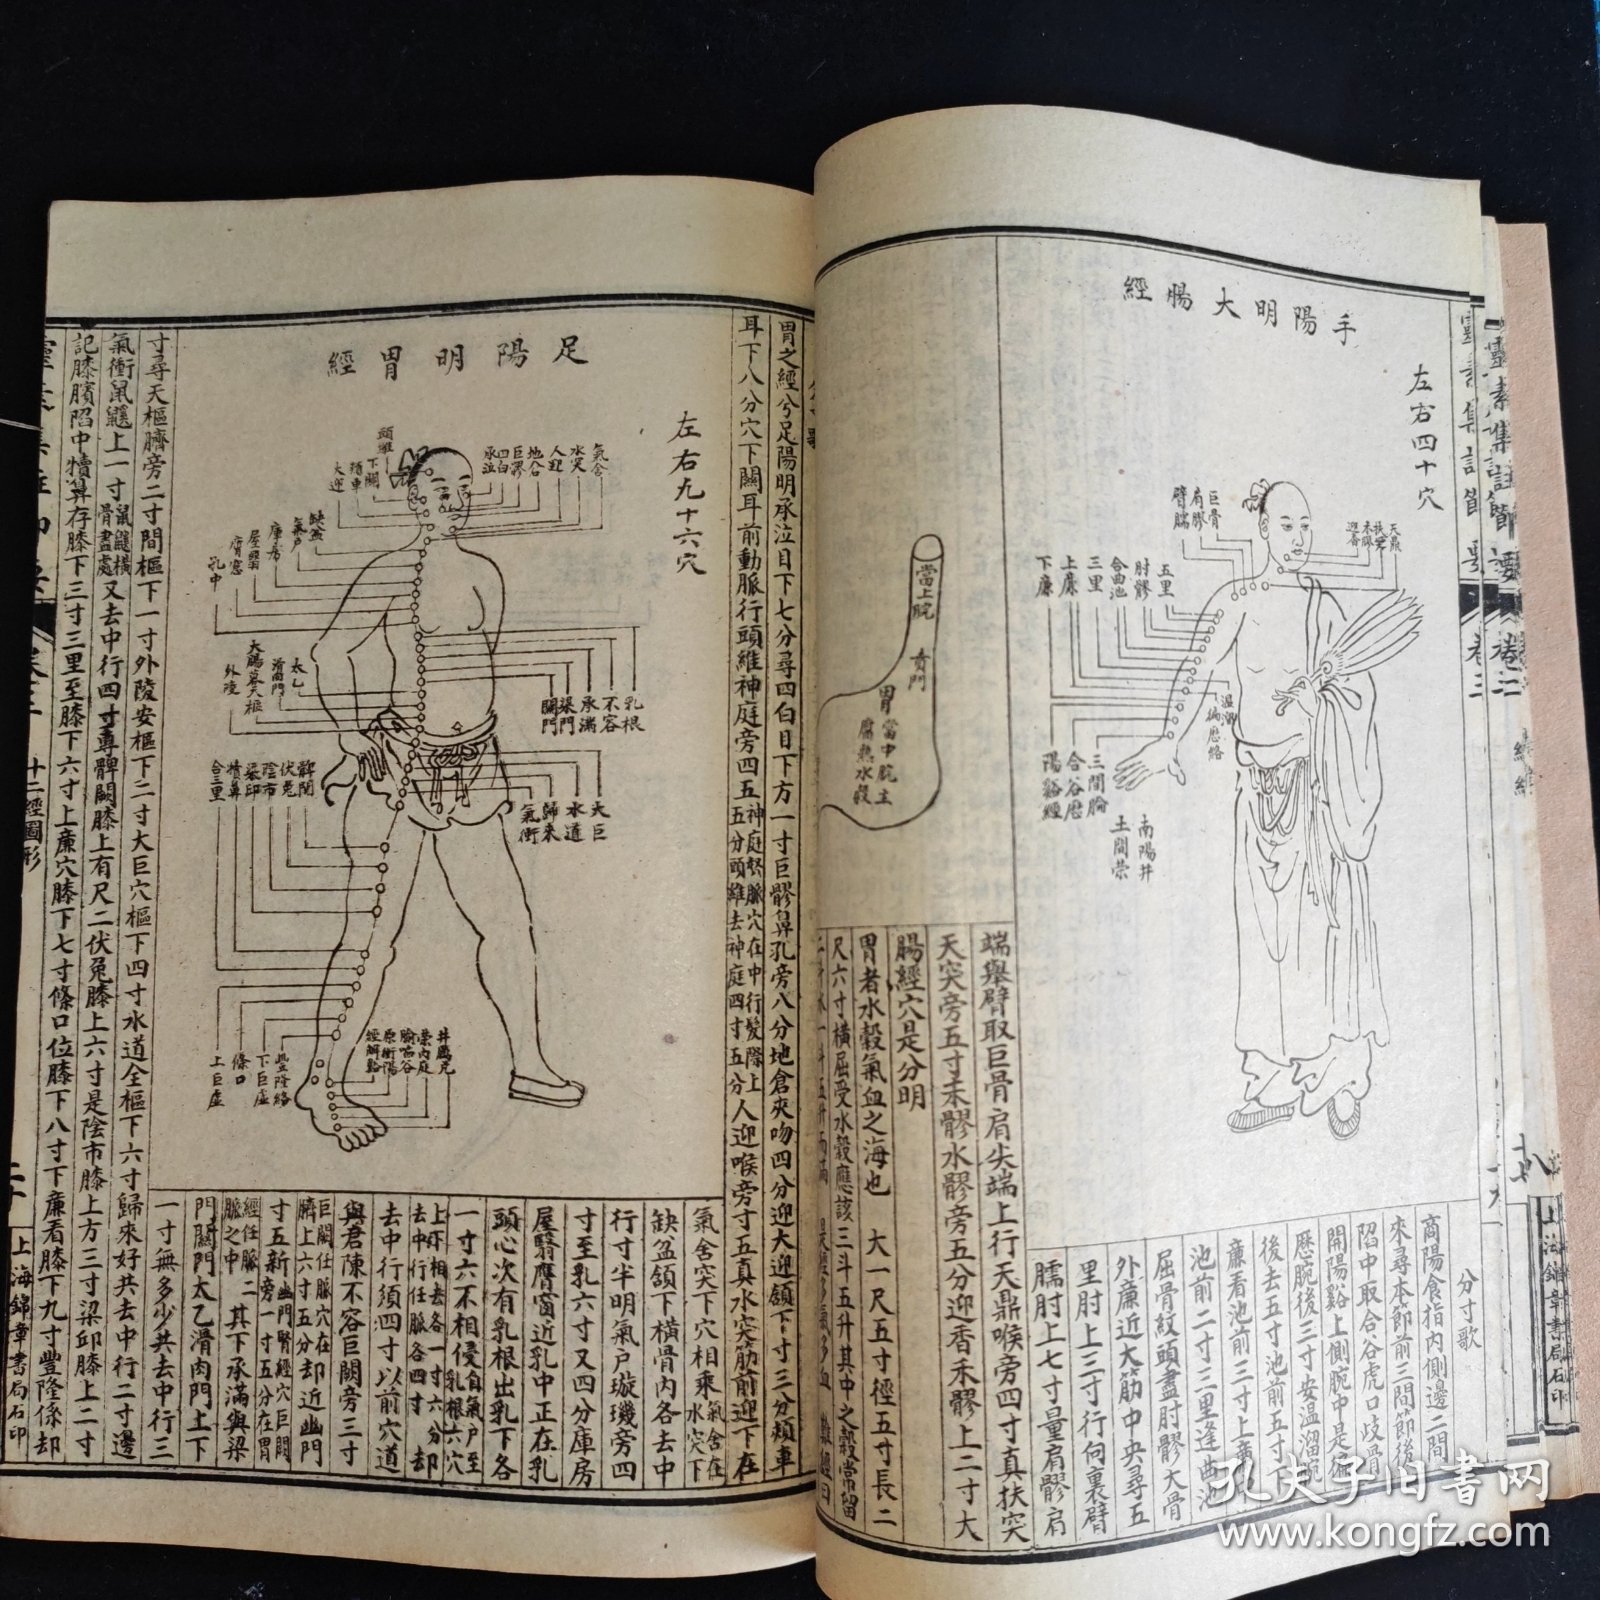 手陽明大腸經
左右四十穴
巨骨
肩髎
臂臑
天鼎
扶突
禾髎
迎香
五里
肘髎
合曲池
三里
上廉
下廉
溫溜
偏歷絡
三間腧
合谷原
陽谿經
商陽井
二間榮
分寸歌
商陽食指內側邊二間
來尋本節前三間節後
陷中取合谷虎口歧骨
開陽谿上側腕中是偏
歷腕後三寸安溫溜腕
後去五寸池前五寸下
廉看池前三寸上廉中
池前二寸三里逢曲池
屈骨紋頭盡肘髎大骨
外廉近大筋中央尋五
里肘上三寸行向裏臂
臑肘上七寸量肩髃肩
端舉臂取巨骨肩尖端上行天鼎喉旁四寸真扶突
天突旁五寸禾髎水髎旁五分迎香禾髎上二寸大
腸經穴是分明
胃者水穀氣血之海也 大一尺五寸徑五寸長二
尺六寸橫屈受水穀應該三斗五升其中之穀常留
當上脘
賁門
胃
當中脘主
腐熟水穀
靈素集註節要
卷三
上海錦章書局石印
胃之經兮足陽明承泣目下七分尋四白目下方一寸巨髎鼻孔旁八分地倉夾吻四分迎大迎頷下寸三分頰車
耳下八分穴下關耳前動脈行頭維神庭旁四五神庭督脈穴在中行髮際上五分頭維去神庭四寸五分人迎喉旁寸五真水突筋前迎下在
足陽明胃經
左右九十六穴
頭維
下關
頰車
大迎
承泣
四白
巨髎
地倉
人迎
水突
氣舍
缺盆
氣戶
庫房
屋翳
膺窓
乳中
乳根
不容
承滿
梁門
關門
太乙
滑肉門
大腸募天樞
外陵
大巨
水道
歸來
氣衝
髀關
伏兔
陰市
梁邱
犢鼻
合三里
上巨虛
條口
下巨虛
豐隆絡
經解谿
原衝陽
腧陷谷
榮內庭
井厲兌
氣舍突下穴相乘氣舍在水突下
缺盆頷下橫骨內各去中
行寸半明氣戶璇璣旁四
寸至乳六寸又四分庫房
屋翳膺窗近乳中正在乳
頭心次有乳根出乳下各
一寸六不相侵自氣戶至乳根六穴
上下相去各一寸六分却去中行任脈各四寸 却
去中行須四寸以前穴道
與君陳不容巨闕旁三寸
巨闕任脈穴在臍上六寸五分却近幽門
寸五新幽門腎經穴巨闕旁一寸五分在胃
經任脈二脈之中 其下承滿與梁
門關門太乙滑肉門上下
一寸無多少共去中行三
寸尋天樞臍旁二寸間樞下一寸外陵安樞下二寸大巨穴樞下四寸水道全樞下六寸歸來好共去中行二寸邊
氣衝鼠鼷上一寸鼠鼷橫骨盡處又去中行四寸專髀闕膝上有尺二伏兔膝上六寸是陰市膝上方三寸梁邱膝上二寸
記膝臏陷中犢鼻存膝下三寸三里至膝下六寸上廉穴膝下七寸條口位膝下八寸下廉看膝下九寸豐隆係却
十二經圖形
二十
上海錦章書局石印
孔夫子旧书网
www.kongfz.com